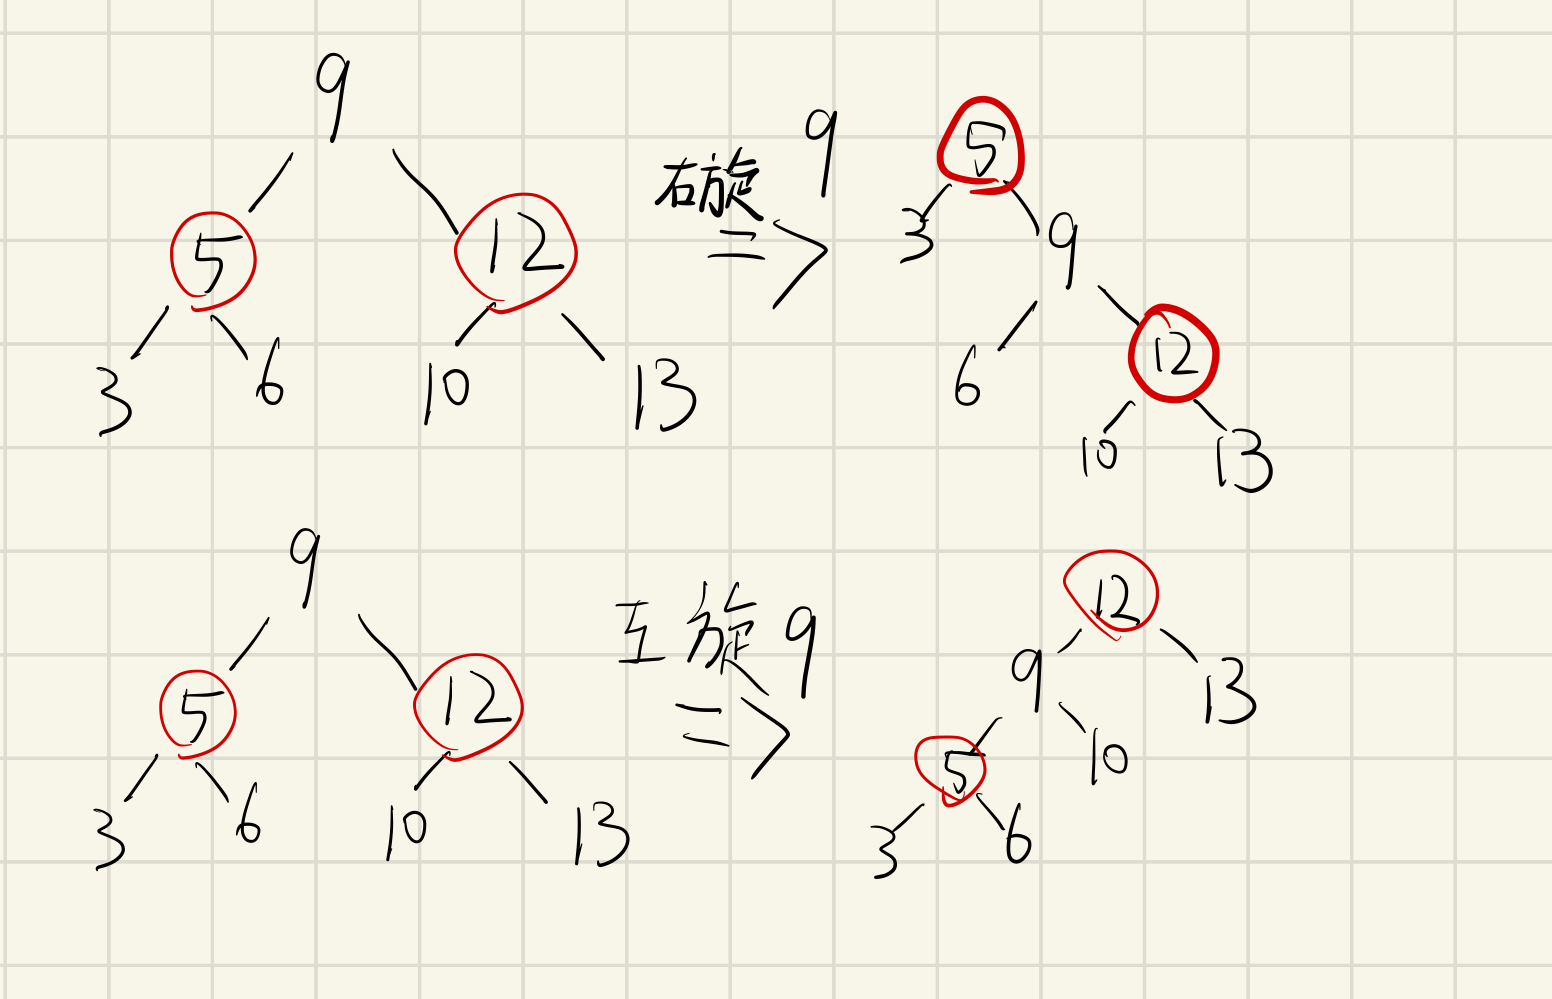 9
5 12
3 6 10 13
右旋 9
5
3 9
6 12
10 13
9
5 12
3 6 10 13
左旋 9
12
9 13
5 10
3 6